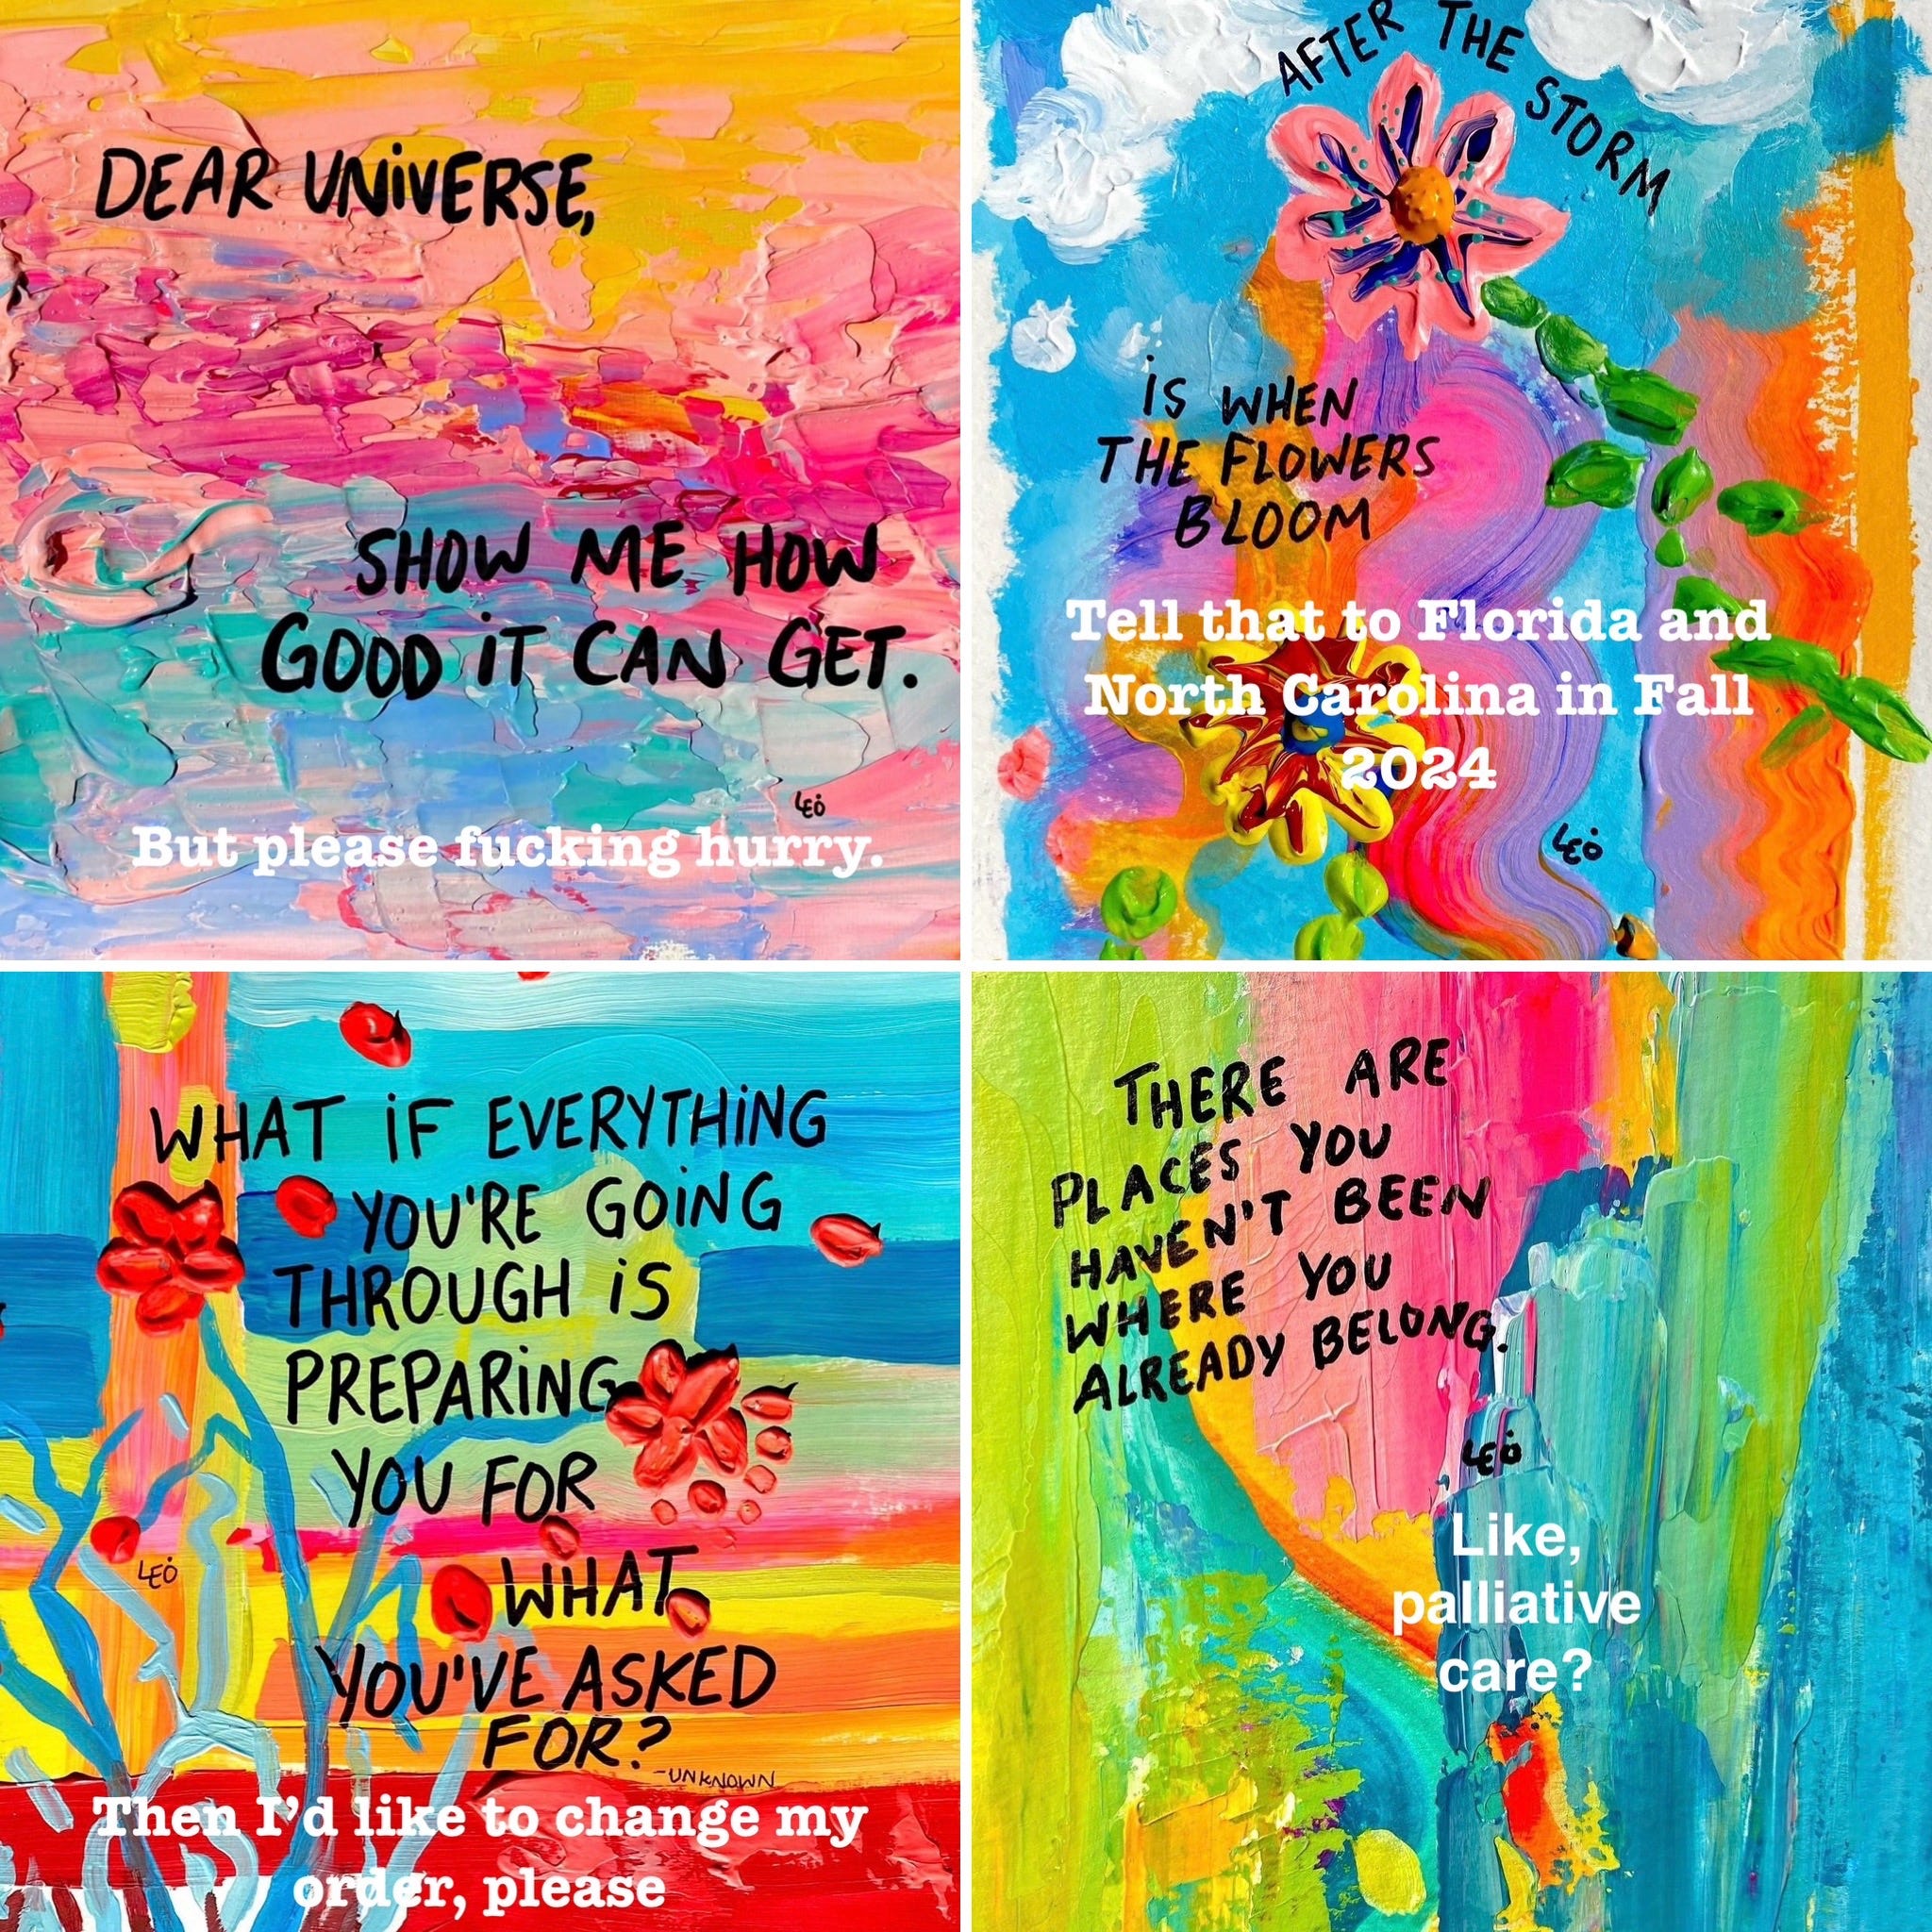 DEAR UNiVERSE,
SHOW ME HOW
GOOD iT CAN GET.
LEO
But please fucking hurry.
AFTER THE STORM
iS WHEN
THE FLOWERS
BLOOM
Tell that to Florida and
North Carolina in Fall
2024
LEO
WHAT iF EVERYTHiNG
YOU'RE GOiNG
THROUGH iS
PREPARiNG
YOU FOR
WHAT
YOU'VE ASKED
FOR?
-UNKNOWN
LEO
Then I'd like to change my
order, please
THERE ARE
PLACES YOU
HAVEN'T BEEN
WHERE YOU
ALREADY BELONG.
LEO
Like,
palliative
care?